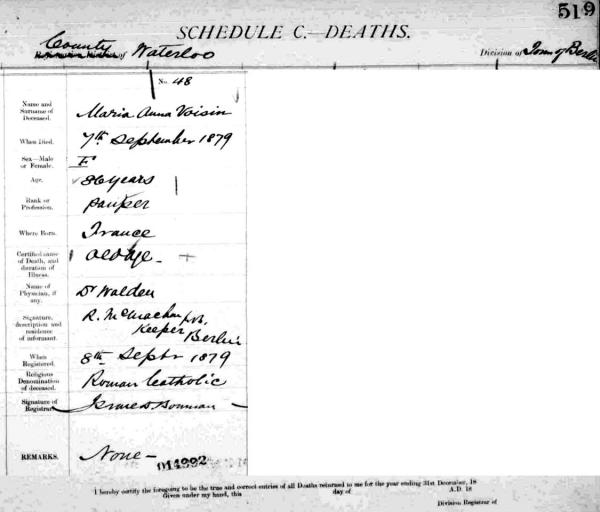 519
SCHEDULE C.—DEATHS.
County of Waterloo
Division of Town of Berlin
No. 48
Name and Surname of Deceased.
Maria Anna Voisin
When Died.
7th September 1879
Sex—Male or Female.
F
Age.
86 years
Rank or Profession.
pauper
Where Born.
France
Certified cause of Death, and duration of Illness.
Old Age
Name of Physician, if any.
Dr Walden
Signature, description and residence of informant.
R. McMachan
Keeper
Berlin
When Registered.
8th Septbr 1879
Religious Denomination of deceased.
Roman Catholic
Signature of Registrar.
Bowman
REMARKS.
None -
014992
I hereby certify the foregoing to be the true and correct entries of all Deaths returned to me for the year ending 31st December, 18
Given under my hand, this day of A.D. 18
Division Registrar of